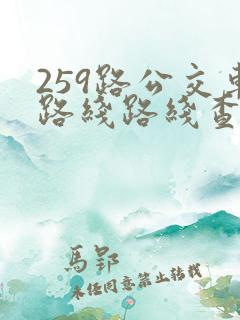 259路公交
路线路线查
馬郢
未经同意禁止转载